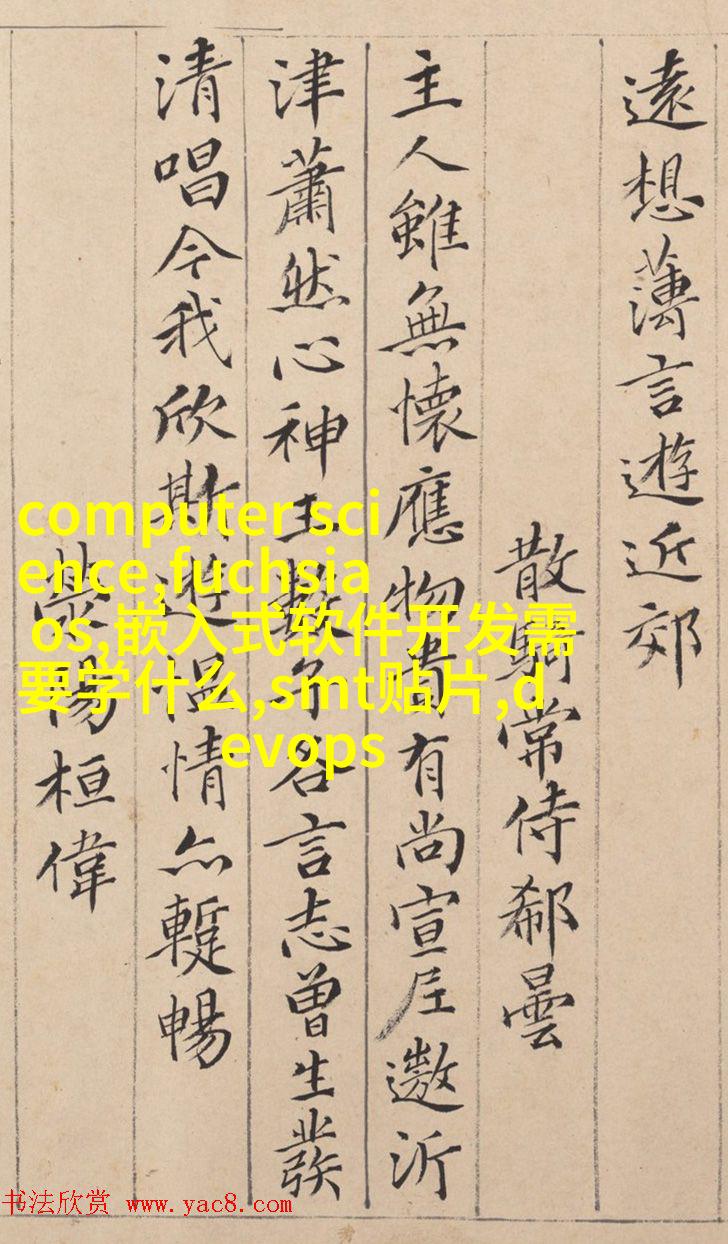 遠想薄言遊近郊
散騎常侍郗曇
主人雖無懷應物貴有尚宣尼遨沂
津蕭然心神王數子各言志曾生發
清唱今我欣斯遊慍情亦蹔暢
滎陽桓偉
computer sci
ence,fuchsia
os,嵌入式软件开发需
要学什么,smt贴片,d
evops
书法欣赏 www.yac8.com